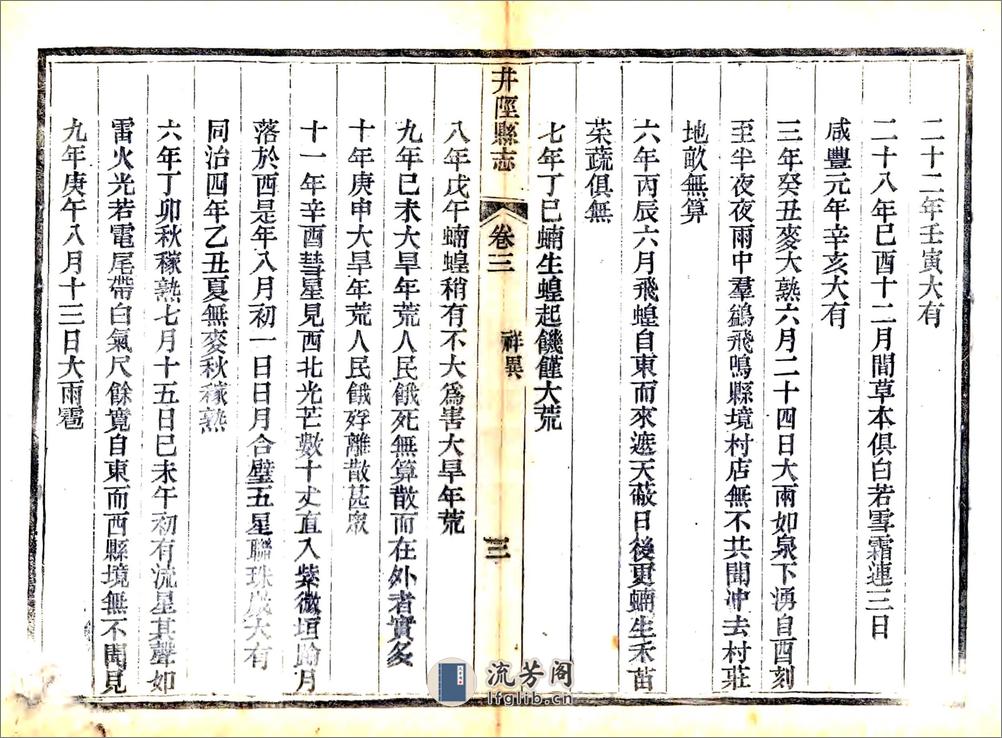 二十二年壬寅大有
二十八年己酉十二月間草木俱白若雪霜連三日
咸豐元年辛亥大有
三年癸丑麥大熟六月二十四日大雨如泉下湧自酉刻
至半夜夜雨中羣鷁飛鳴縣境村店無不共聞冲去村莊
地畝無算
六年丙辰六月飛蝗自東而來遮天蔽日後更蝻生禾苗
菜蔬俱無
七年丁巳蝻生蝗起饑僅大荒
井陘縣志
卷三
祥異
三
八年戊午蝻蝗稍有不大爲害大旱年荒
九年己未大旱年荒人民餓死無算散而在外者實多
十年庚申大旱年荒人民餓殍離散甚眾
十一年辛酉彗星見西北光芒數十丈直入紫微垣踰月
落於西是年八月初一日日月合璧五星聯珠歲大有
同治四年乙丑夏無麥秋稼熟
六年丁卯秋稼熟七月十五日己未午初有流星其聲如
雷火光若電尾帶白氣尺餘寬自東而西縣境無不聞見
九年庚午八月十三日大雨雹
流芳阁
lfglib.cn